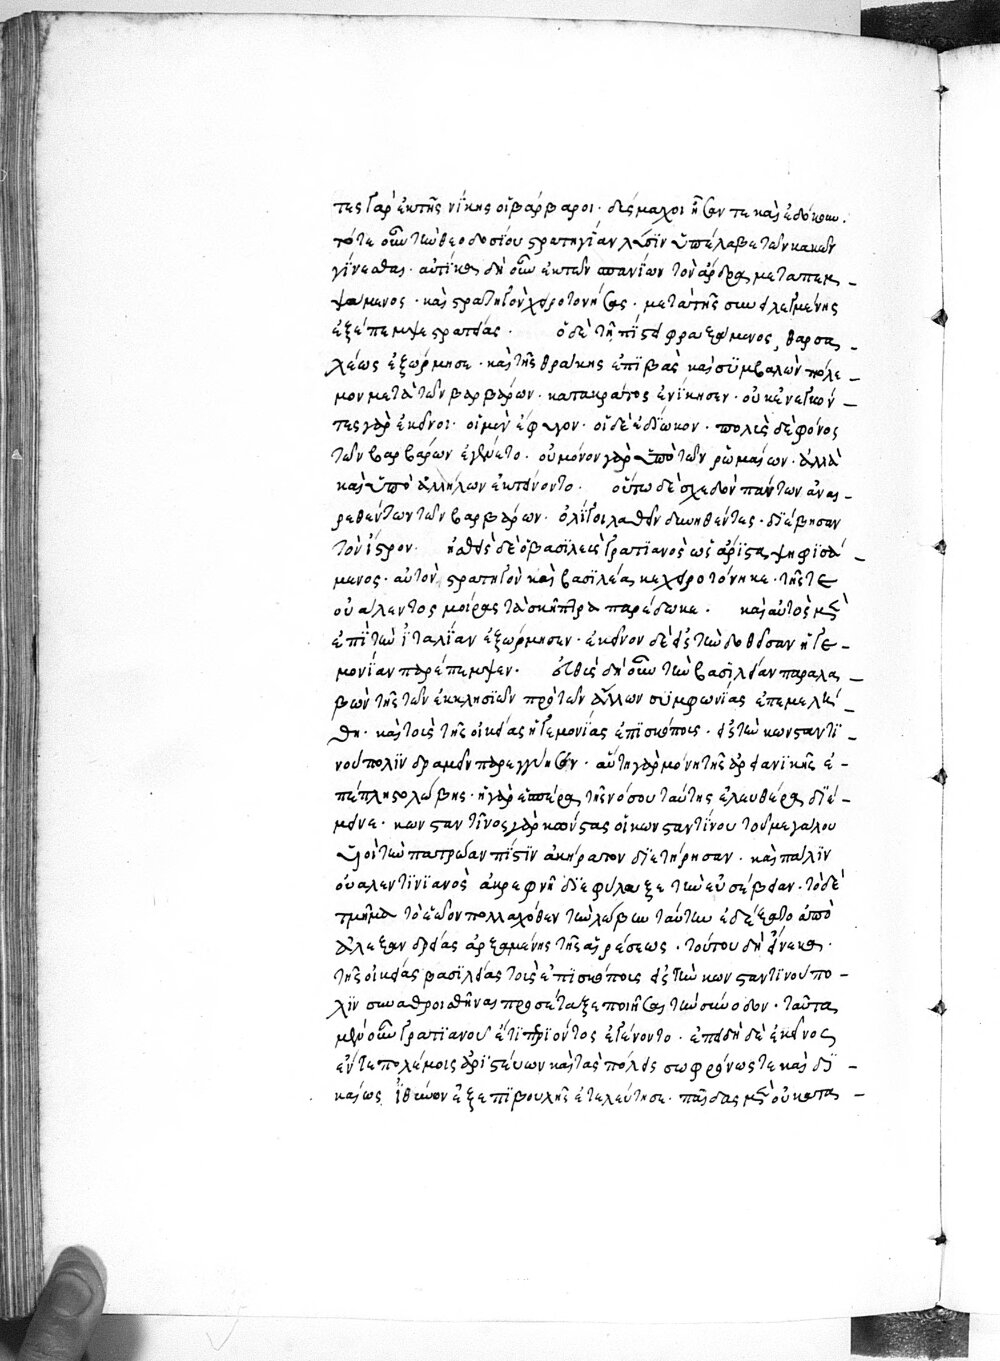 τες γὰρ ἐκ τῆς νίκης οἱ βάρβαροι· δύσμαχοι ἦσάν τε καὶ ἐδόκουν.
τότε οὖν τὴν θεοδοσίου στρατηγίαν λύσιν ὑπέλαβε τῶν κακῶν
γίνεσθαι· αὐτίκα δὴ οὖν ἐκ τῶν σπανίων τὸν ἄνδρα μεταπεμ
ψάμενος· καὶ στρατηγὸν χειροτονήσας· μετὰ τῆς συνειλεγμένης
ἐξέπεμψε στρατιᾶς· ὁ δὲ τῇ πίστει φραξάμενος, θαρσα
λέως ἐξώρμησε· καὶ τῆς θράκης ἐπιβὰς καὶ συμβαλὼν πόλε
μον μετὰ τῶν βαρβάρων· κατακράτος ἐνίκησεν· οὐκ ἐνεγκόν
τες γὰρ ἐκεῖνοι· οἱ μὲν ἔφευγον· οἱ δὲ ἐδίωκον· πολὺς δὲ φόνος
τῶν βαρβάρων ἐγένετο· οὐ μόνον γὰρ ὑπὸ τῶν ῥωμαίων· ἀλλὰ
καὶ ὑπὸ ἀλλήλων ἐκτείνοντο· οὕτω δὲ σχεδὸν πάντων ἀναι
ρεθέντων τῶν βαρβάρων· ὀλίγοι λαθεῖν δυνηθέντες· διέβησαν
τὸν ἴστρον· ἡσθεὶς δὲ ὁ βασιλεὺς γρατιανὸς ὡς ἄριστα ψηφισά
μενος· αὐτὸν στρατηγὸν καὶ βασιλέα κεχειροτόνηκε· τῆς τε
οὐάλεντος μοίρας τὰ σκῆπτρα παρέδωκε· καὶ αὐτὸς μὲν
ἐπὶ τὴν ἰταλίαν ἐξώρμησεν· ἐκεῖνον δὲ εἰς τὴν δοθεῖσαν ἡγε
μονίαν παρέπεμψεν· εὐθὺς δὴ οὖν τὴν βασιλείαν παραλα
βὼν τῆς τῶν ἐκκλησιῶν πρὸ τῶν ἄλλων συμφωνίας ἐπεμελή
θη· καὶ τοὺς τῆς οἰκείας ἡγεμονίας ἐπισκόπους· εἰς τὴν κωνσταντι
νούπολιν δραμεῖν παρεγγύησεν· αὕτη γὰρ μόνη τῆς ἀρειανικῆς ἐ
πέπληστο λώβης· ἡ γὰρ ἑσπέρα τῆς νόσου ταύτης ἐλευθέρα διέ
μεινε· κωνσταντῖνος γὰρ καὶ κώνστας οἱ κωνσταντίνου τοῦ μεγάλου
υἱοὶ τὴν πατρῴαν πίστιν ἀκήρατον διετήρησαν· καὶ πάλιν
οὐαλεντινιανὸς ἀκραιφνῆ διεφύλαξε τὴν εὐσέβειαν· τὸ δὲ
τμῆμα τὸ ἑῷον πολλαχόθεν τὴν λώβην ταύτην ἐδέξατο ἀπὸ
ἀλεξανδρείας ἀρξαμένης τῆς αἱρέσεως· τούτου δὴ ἕνεκα·
τῆς οἰκείας βασιλείας τοὺς ἐπισκόπους εἰς τὴν κωνσταντινούπο
λιν συναθροισθῆναι προσέταξε ποιῆσαι τὴν σύνοδον· ταῦτα
μὲν οὖν γρατιανοῦ ἔτι περιόντος ἐγένοντο· ἐπειδὴ δὲ ἐκεῖνος
ἔν τε πολέμοις ἀριστεύων καὶ τὰς πόλεις σωφρόνως τε καὶ δι
καίως ἰθύνων ἐξ ἐπιβουλῆς ἐτελεύτησε· παῖδας μὲν οὐ κατα